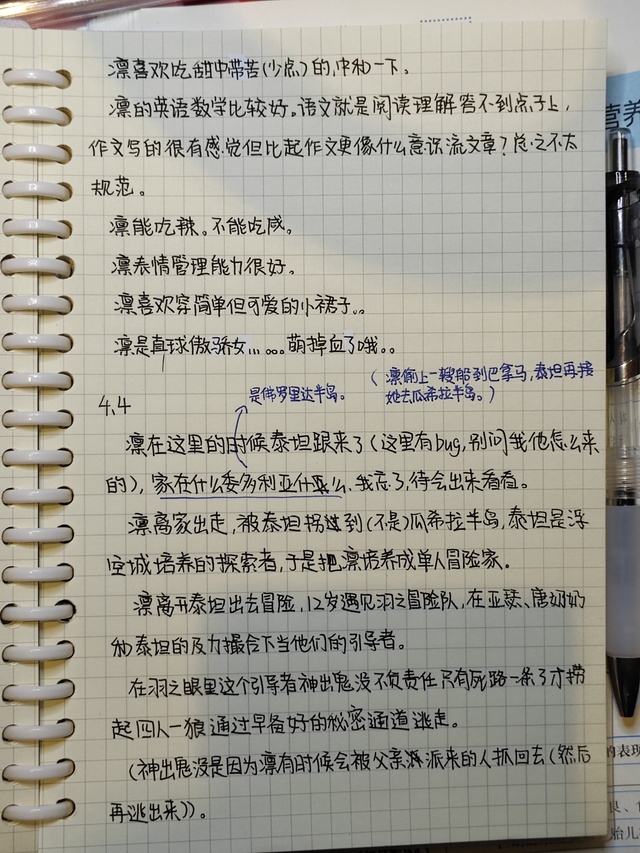 凛喜欢吃甜中带苦(少点)的,中和一下。
凛的英语数学比较好。语文就是阅读理解答不到点子上,
作文写的很有感觉但比起作文更像什么意识流文章?总之不太
规范。
凛能吃辣。不能吃咸。
凛表情管理能力很好。
凛喜欢穿简单但可爱的小裙子。。
凛是真球傲骄女……。。。萌掉血了哦。。
(凛偷上一艘船到巴拿马,泰坦再接
她去瓜希拉半岛。)
是佛罗里达半岛。
4.4
凛在这里的时候泰坦跟来了(这里有bug,别问我他怎么来
的),家在什么委多利亚什么么、我忘了,待会出来看看。
凛离家出走,被泰坦拐过到(不是)瓜希拉半岛,泰坦是浮
空城培养的探索者,于是把凛培养成单人冒险家。
凛离开泰坦出去冒险,12岁遇见羽之冒险队,在亚瑟、唐奶奶
和泰坦的及力撮合下当他们的引导者。
在羽之眼里这个引导者神出鬼没不负责任只有死路一条了才捞
起四人一狼通过早备好的秘密通道逃走。
(神出鬼没是因为凛有时候会被父亲派来的人抓回去(然后
再逃出来))。
营养
的表现